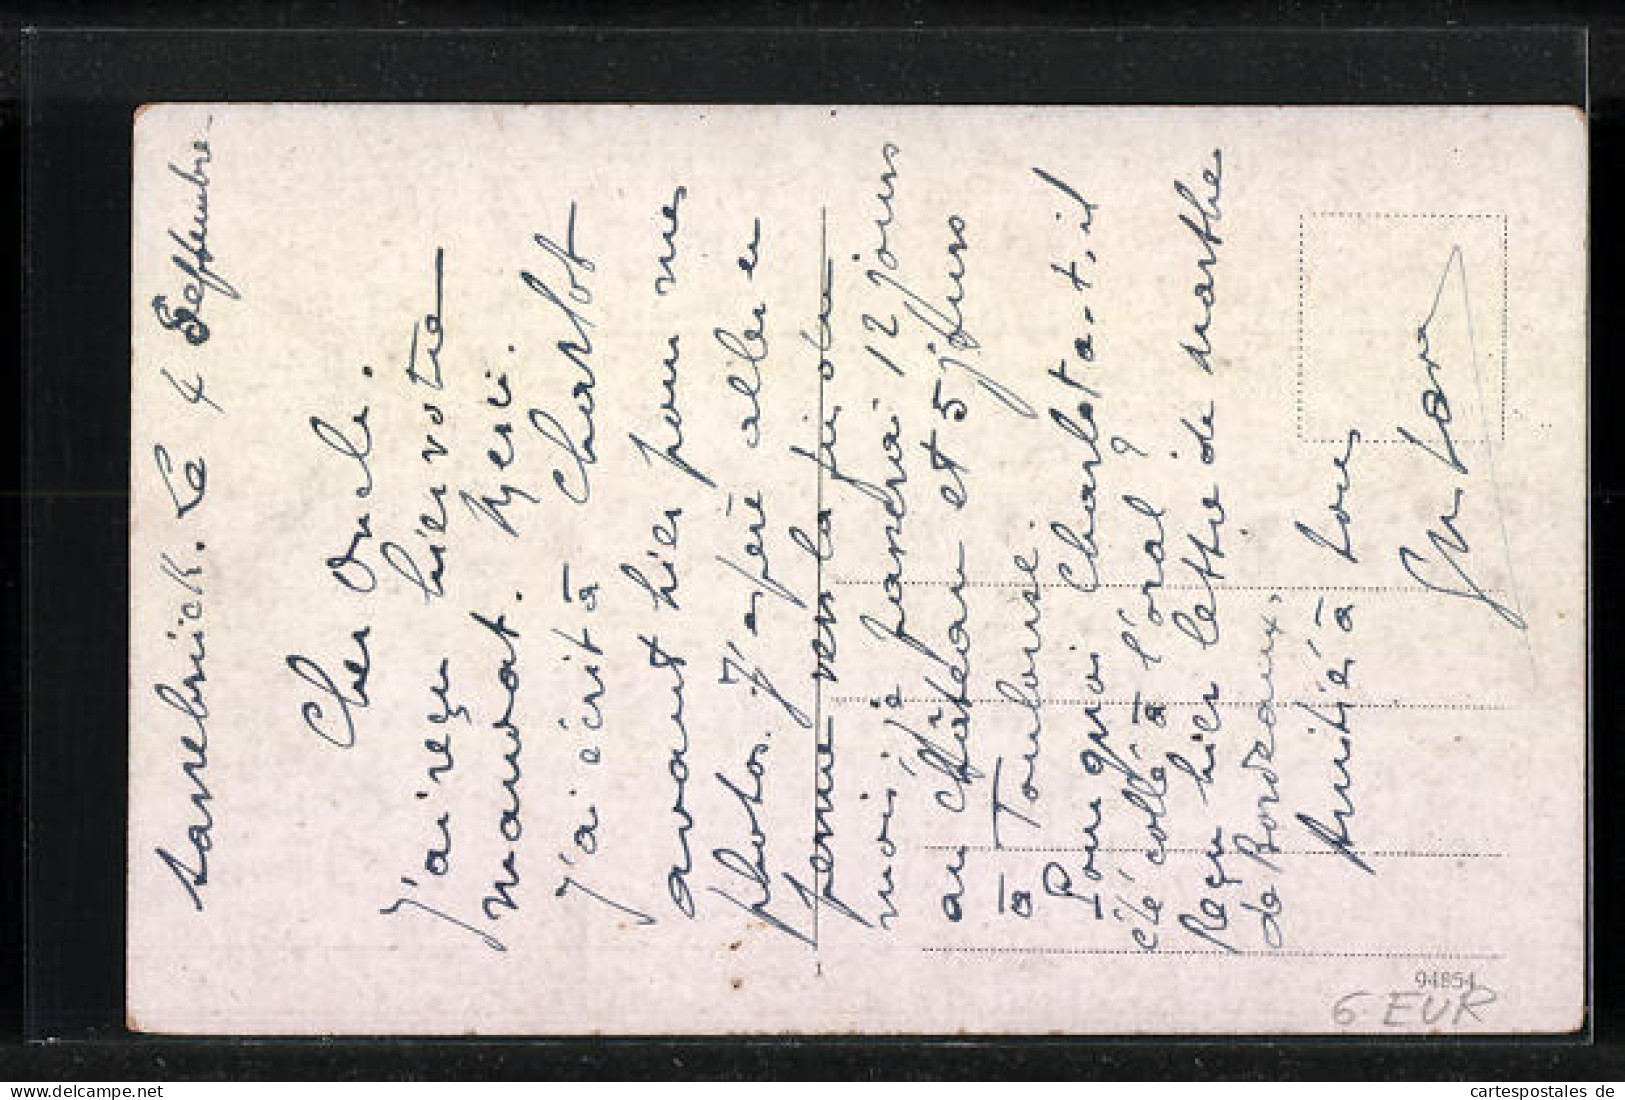 Sarrebrück. Le 4 Septembre
Cher Oncle.
J'ai reçu hier votre
mandat. Merci.
J'ai écrit à Charlot
avant hier pour mes
photos. J'espère aller en
perme vers la fin du
mois je passerai 12 jours
au Château et 5 jours
à Toulouse.
Pourquoi Charlot a-t-il
été collé à l'oral ?
Reçu hier lettre de Marthe
de Bordeaux.
Amitié à tous
1
94854
6 EUR
cartespostales de